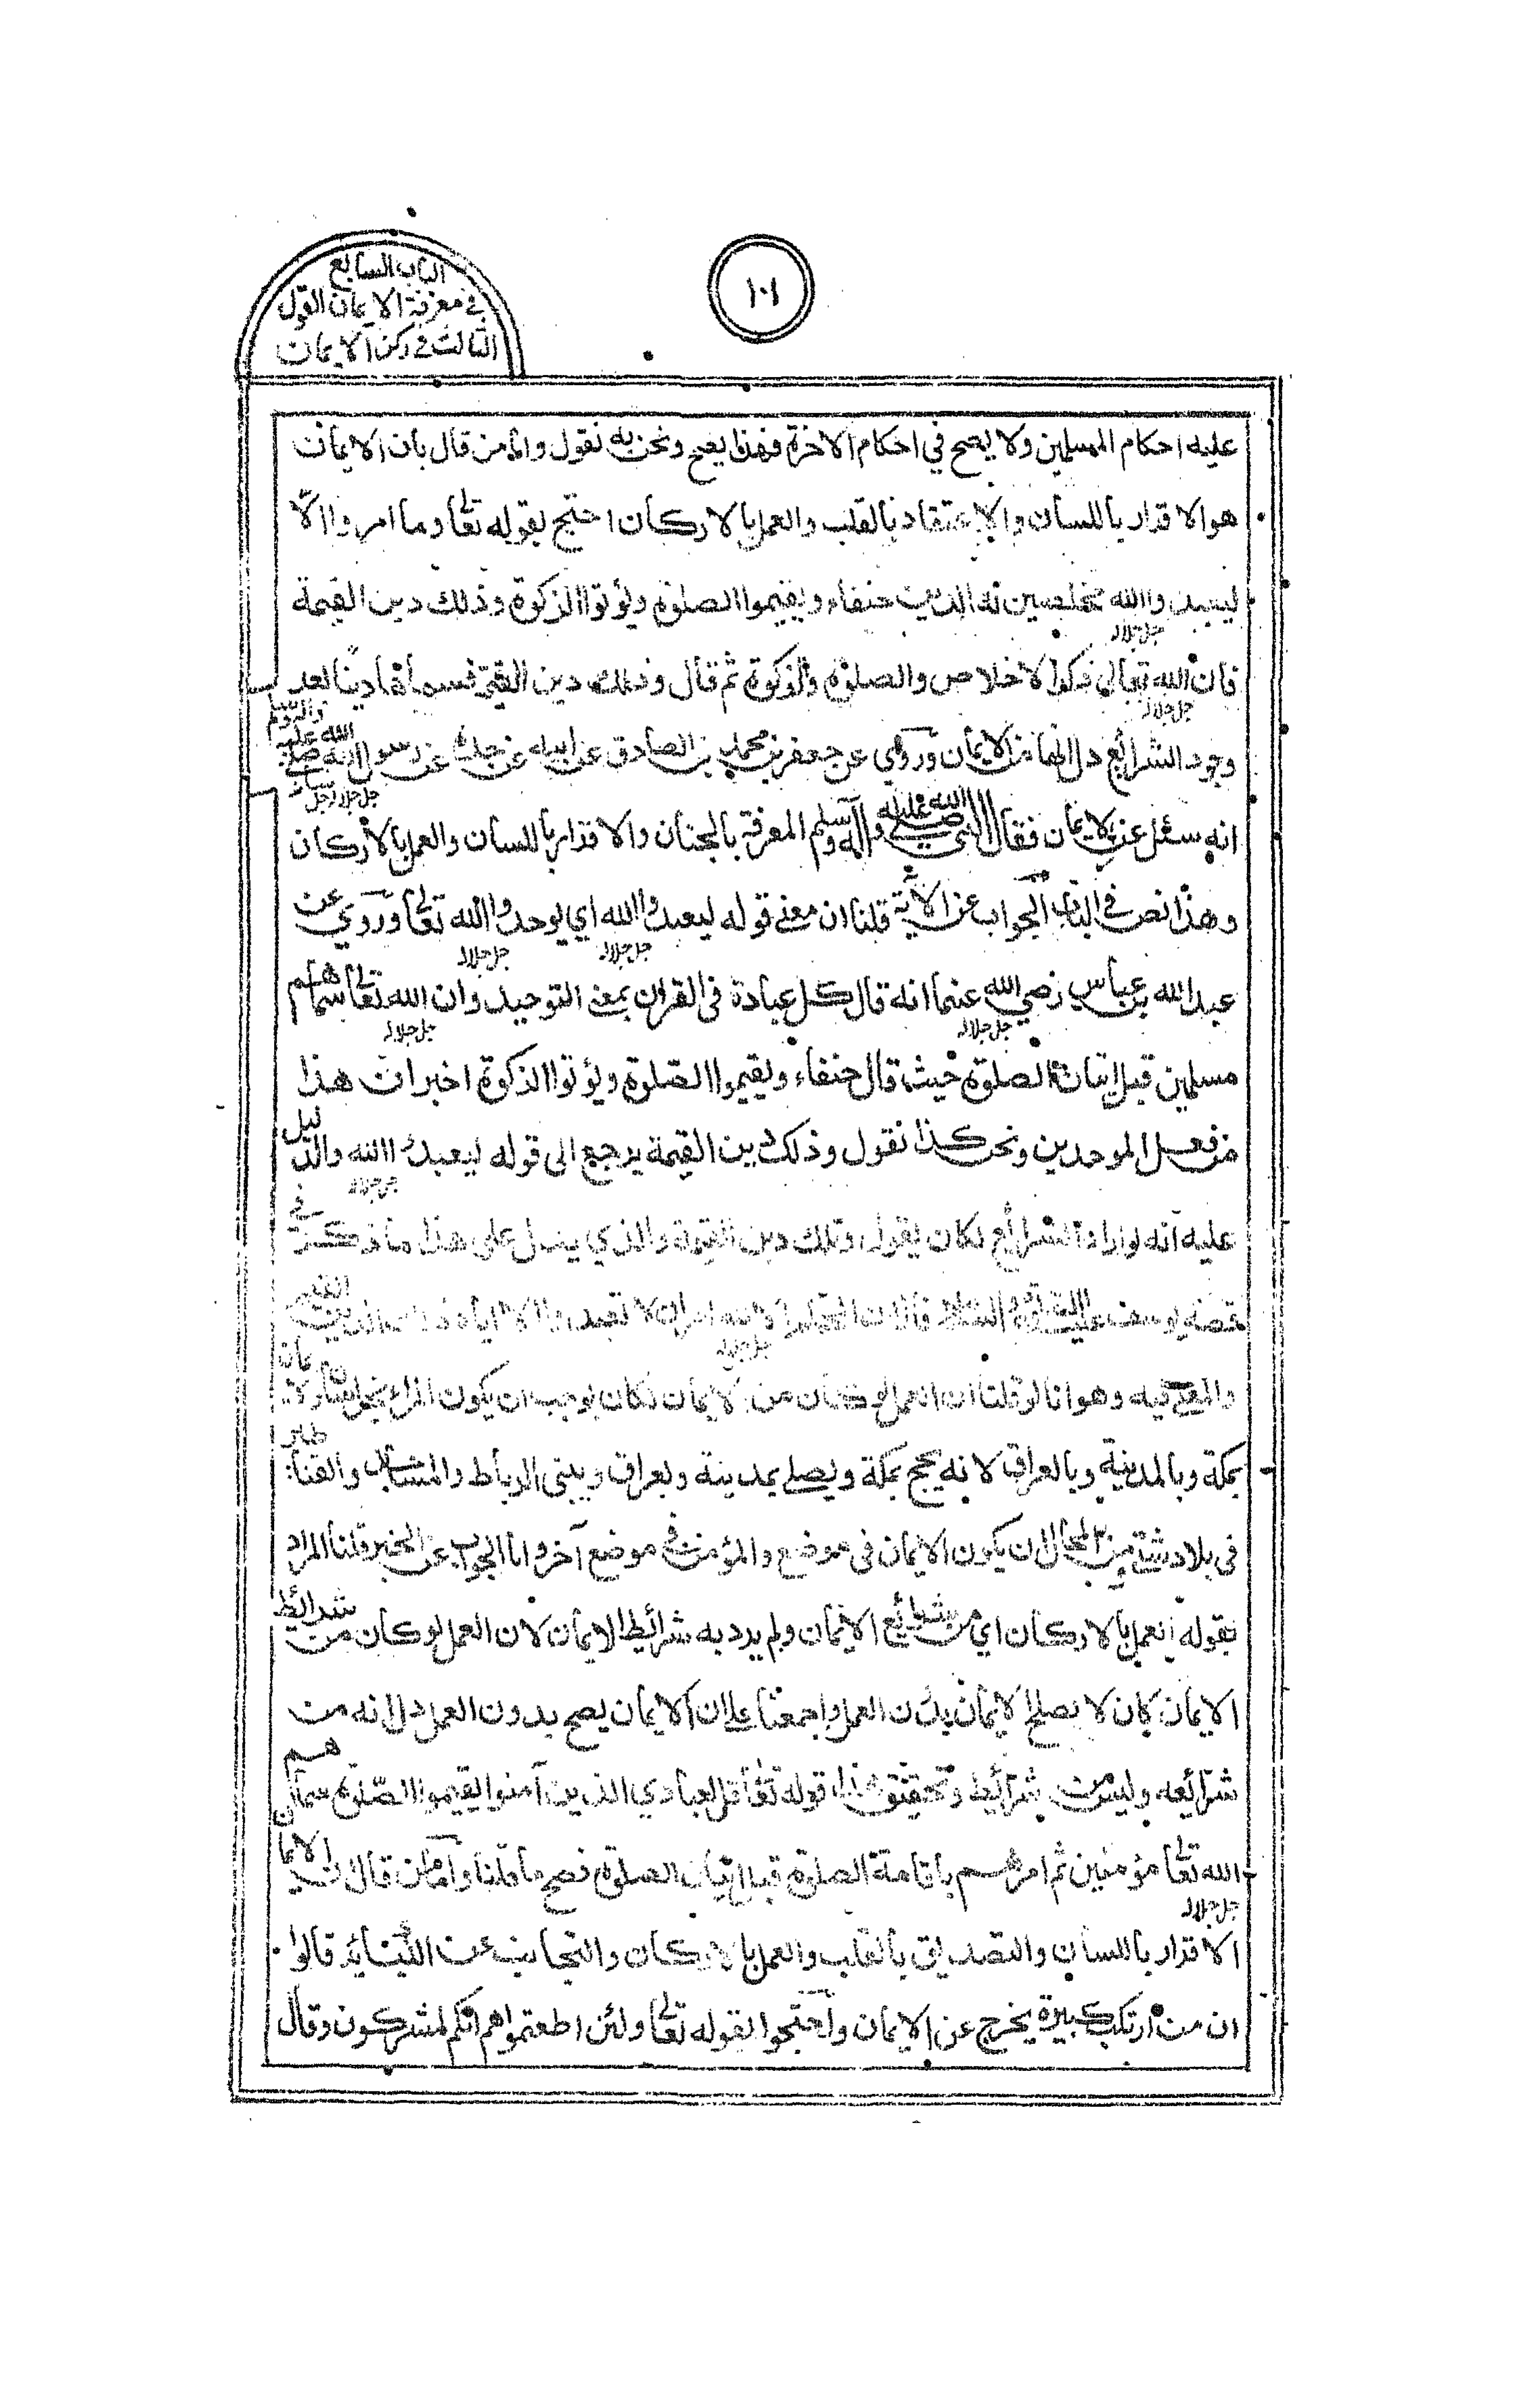 ١٠١
الباب السابع
في معرفة الايمان القول
الثالث في ركن الايمان
عليه احكام المسلمين ولا يصح في احكام الاخرة فهذا يصح ونحن به نقول واما من قال بان الايمان
هو الاقرار باللسان والاعتقاد بالقلب والعمل بالاركان احتج بقوله تعالى وما امروا الا
ليعبدوا الله مخلصين له الدين حنفاء ويقيموا الصلوة ويؤتوا الزكوة وذلك دين القيمة
جل جلاله
فان الله تعالى ذكر الاخلاص والصلوة والزكوة ثم قال وذلك دين القيمة فسماها دينا بعد
جل جلاله
وجود الشرائع دل انها من الايمان وروي عن جعفر بن محمد بن الصادق عن ابيه عن جده عن رسول الله صلى الله عليه واله وسلم
جل جلاله
انه سئل عن الايمان فقال النبي صلى الله عليه واله وسلم المعرفة بالجنان والاقرار باللسان والعمل بالاركان
وهذا نص في الباب الجواب عن الآية قلنا ان معنى قوله ليعبدوا الله اي ليوحدوا الله تعالى وروي عن
جل جلاله جل جلاله
عبد الله بن عباس رضي الله عنهما انه قال كل عبادة في القران بمعنى التوحيد وان الله تعالى سماهم
جل جلاله جل جلاله
مسلمين قبل اتيان الصلوة حيث قال حنفاء ويقيموا الصلوة ويؤتوا الزكوة اخبر ان هذا
من فعل الموحدين ونحن كذا نقول وذلك دين القيمة يرجع الى قوله ليعبدوا الله والدليل
جل جلاله
عليه انه لو اراد الشرائع لكان يقول وتلك دين القيمة والذي يدل على هذا ما ذكر في
قصة يوسف عليه الصلوة والسلام قال ان الحكم الا لله امر ان لا تعبدوا الا اياه ذلك الدين القيم
جل جلاله
والمعنى فيه وهو انا لو قلنا ان العمل لو كان من الايمان لكان يوجب ان يكون المرء
بمكة وبالمدينة وبالعراق لانه يحج بمكة ويصلي بمدينة وبعراق ويبنى الرباط والمساجد والقناطر
في بلاد شتى من المحال ان يكون الايمان في موضع والمؤمن في موضع آخر واما الجواب عن الخبر قلنا المراد
بقوله العمل بالاركان اي من شرائع الايمان ولم يرد به شرائط الايمان لان العمل لو كان من شرائط
الايمان كان لا يصلح الايمان بدون العمل واجمعنا على ان الايمان يصح بدون العمل دل انه من
شرائعه وليس من شرائط وتحقيق هذا قوله تعالى قل لعبادي الذين آمنوا يقيموا الصلوة سماهم
الله تعالى مؤمنين ثم امرهم باقامة الصلوة قبل اتيان الصلوة فصح ما قلنا واما من قال ان الايمان
جل جلاله
الاقرار باللسان والتصديق بالقلب والعمل بالاركان والتجانب عن الكبائر قالوا
ان من ارتكب كبيرة يخرج عن الايمان واحتجوا بقوله تعالى ولئن اطعتمواهم انكم لمشركون وقال